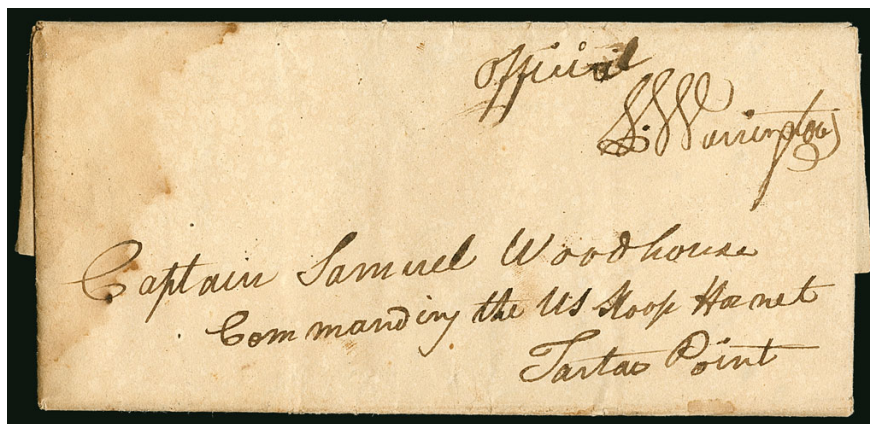 Official
L. Warrington
Captain Samuel Woodhouse
Commanding the US Sloop Hornet
Tartar Point